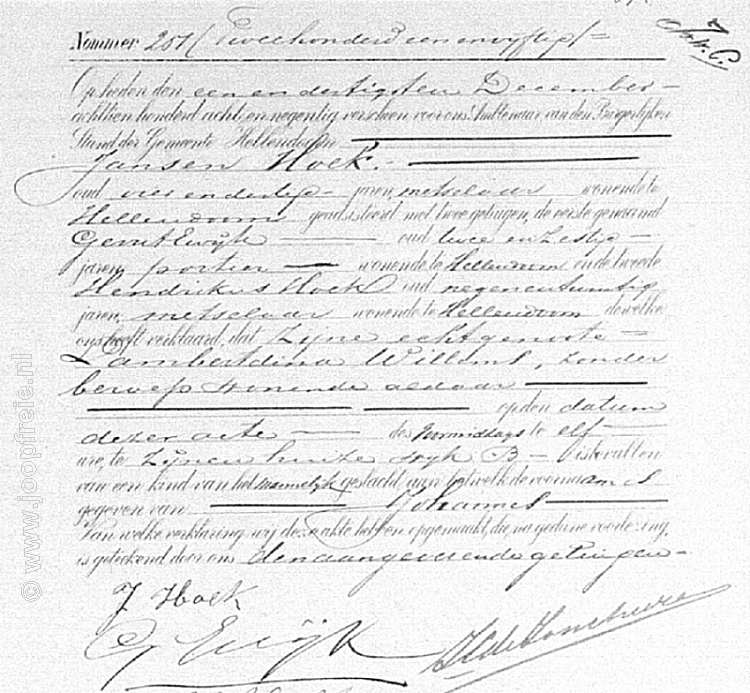 Nommer 251 (Tweehonderd een en vyftig) =
Op heden den een en dertigsten December
achttien honderd acht en negentig verscheen voor ons Ambtenaar van den Burgerlijken
Stand der Gemeente Hellendoorn
Jansen Hoek.
oud vier en dertig jaren, metselaar wonende te
Hellendoorn geadsisteerd met twee getuigen, de eerste genaamd
Gerrit Ewijk oud twee en zestig
jaren, portier wonende te Hellendoorn en de tweede
Hendrikus Hoek oud negenentwintig
jaren, metselaar wonende te Hellendoorn dewelke
ons heeft verklaard, dat Zijne echtgenoote
Lambertdina Willems, zonder
beroep wonende aldaar
op den datum
dezer acte des voormiddags te elf
ure, te Zijnen huize wyk B is bevallen
van een kind van het mannelijk geslacht aan hetwelk de voornaam
gegeven van Johannes
Van welke verklaring wij deze akte hebben opgemaakt, die, na gedane voorlezing,
is geteekend door ons den aangever en de getuigen
J Hoek
G Ewijk
© www.joopfreje.nl